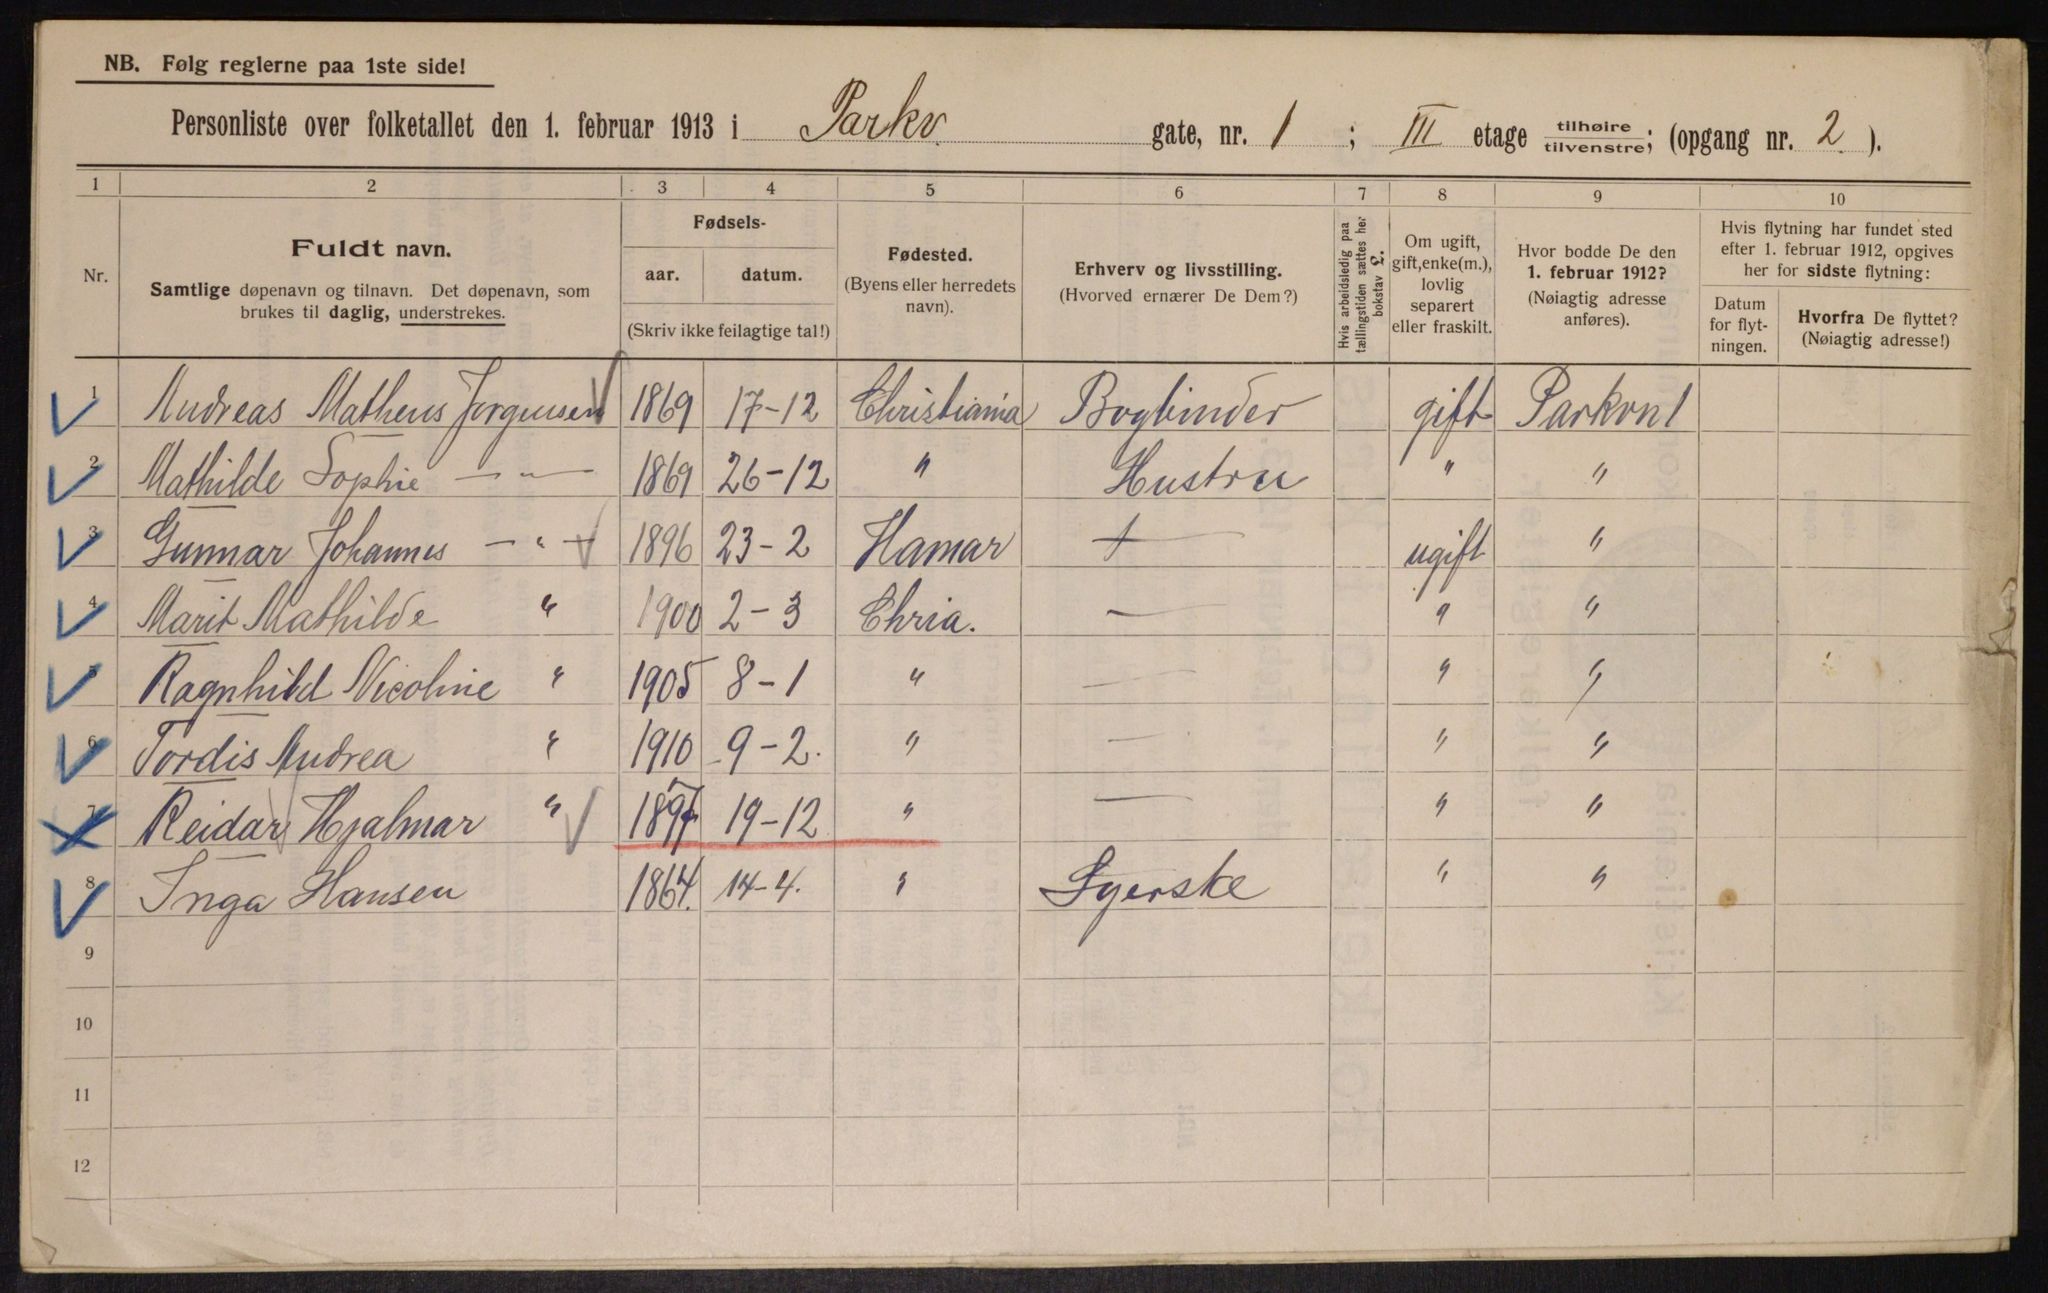 NB. Følg reglerne paa 1ste side!
Personliste over folketallet den 1. februar 1913 i Parkv. gate, nr. 1 ; III etage tilhøire tilvenstre; (opgang nr. 2 ).
1 2 3 4 5 6 7 8 9 10
Nr.
Fuldt navn.
Samtlige døpenavn og tilnavn. Det døpenavn, som
brukes til daglig, understrekes.
Fødsels-
aar. datum.
(Skriv ikke feilagtige tal!)
Fødested.
(Byens eller herredets
navn).
Erhverv og livsstilling.
(Hvorved ernærer De Dem?)
Hvis arbeidsledig paa
tællingstiden sættes her
bokstav L.
Om ugift,
gift, enke(m.),
lovlig
separert
eller fraskilt.
Hvor bodde De den
1. februar 1912?
(Nøiagtig adresse
anføres).
Hvis flytning har fundet sted
efter 1. februar 1912, opgives
her for sidste flytning:
Datum
for flyt-
ningen.
Hvorfra De flyttet?
(Nøiagtig adresse!)
1 Andreas Matheus Jørgensen 1869 17-12 Christiania Bogbinder gift Parkvn 1
2 Mathilde Sophie — " — 1869 26-12 " Hustru " "
3 Gunnar Johannes — " — 1896 23-2 Hamar — ugift "
4 Marit Mathilde " 1900 2-3 Chria. — " "
5 Ragnhild Nicoline " 1905 8-1 " — " "
6 Tordis Andrea " 1910 9-2. " — " "
7 Reidar Hjalmar " 1897 19-12 " — " "
8 Inga Hansen 1864. 14-4. " Syerske " "
9
10
11
12